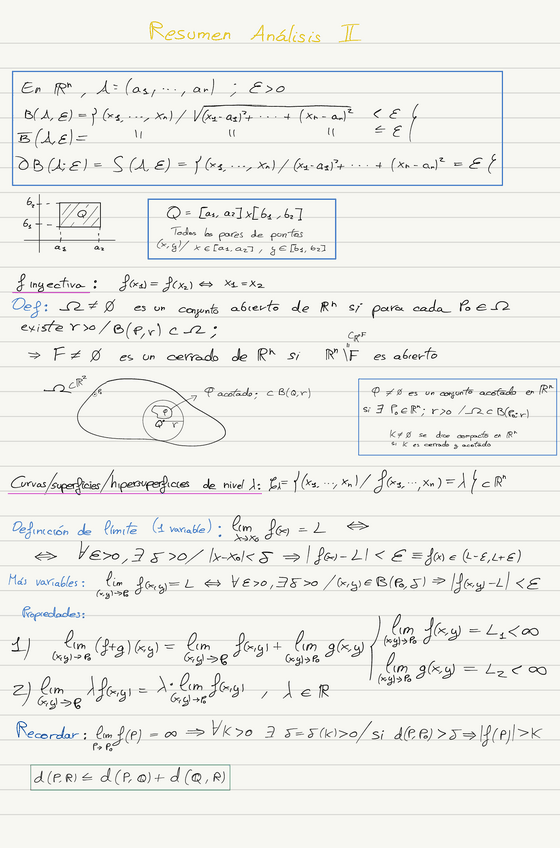 Resumen Análisis II
En ℝⁿ, A=(a₁, ..., aₙ) ; ε>0
B(A,ε) = {(x₁, ..., xₙ) / √((x₁-a₁)²+ ... + (xₙ-aₙ)²) < ε}
B̅(A,ε) = " " " ≤ ε}
∂B(A;ε) = S(A,ε) = {(x₁, ..., xₙ) / (x₁-a₁)²+ ... + (xₙ-aₙ)² = ε}
b₂
b₁
Q
a₁ a₂
Q = [a₁, a₂]x[b₁, b₂]
Todos los pares de puntos
(x,y) / x ∈ [a₁, a₂] , y ∈ [b₁, b₂]
f inyectiva: f(x₁) = f(x₂) ⇔ x₁ = x₂
Def: Ω ≠ Ø es un conjunto abierto de ℝⁿ si para cada P₀ ∈ Ω
existe r>0 / B(P,r) ⊂ Ω ;
⇒ F ≠ Ø es un cerrado de ℝⁿ si ℝⁿ\F es abierto
Ω ⊂ ℝ²
φ acotado; ⊂ B(Q,r)
Q r
φ ≠ Ø es un conjunto acotado en ℝⁿ
si ∃ P₀ ∈ ℝⁿ; r>0 / Ω ⊂ B(P₀;r)
K ≠ Ø se dice compacto en ℝⁿ
si K es cerrado y acotado
Curvas/superficies/hipersuperficies de nivel λ: = {(x₁, ..., xₙ) / f(x₁, ..., xₙ) = λ} ⊂ ℝⁿ
Definición de límite (1 variable): lim x→x₀ f(x) = L ⇔
⇔ ∀ε>0, ∃ δ>0 / |x-x₀| < δ ⇒ |f(x)-L| < ε ≡ f(x) ∈ (L-ε, L+ε)
Más variables: lim (x,y)→P₀ f(x,y) = L ⇔ ∀ε>0, ∃δ>0 / (x,y) ∈ B(P₀, δ) ⇒ |f(x,y)-L| < ε
Propiedades:
1) lim (x,y)→P₀ (f+g)(x,y) = lim (x,y)→P₀ f(x,y) + lim (x,y)→P₀ g(x,y)
2) lim (x,y)→P₀ λf(x,y) = λ· lim (x,y)→P₀ f(x,y) , λ ∈ ℝ
lim (x,y)→P₀ f(x,y) = L₁ < ∞
lim (x,y)→P₀ g(x,y) = L₂ < ∞
Recordar: lim P→P₀ f(P) = ∞ ⇒ ∀K>0 ∃ δ=δ(K)>0 / si d(P,P₀) > δ ⇒ |f(P)| > K
d(P,R) ≤ d(P,Q) + d(Q,R)